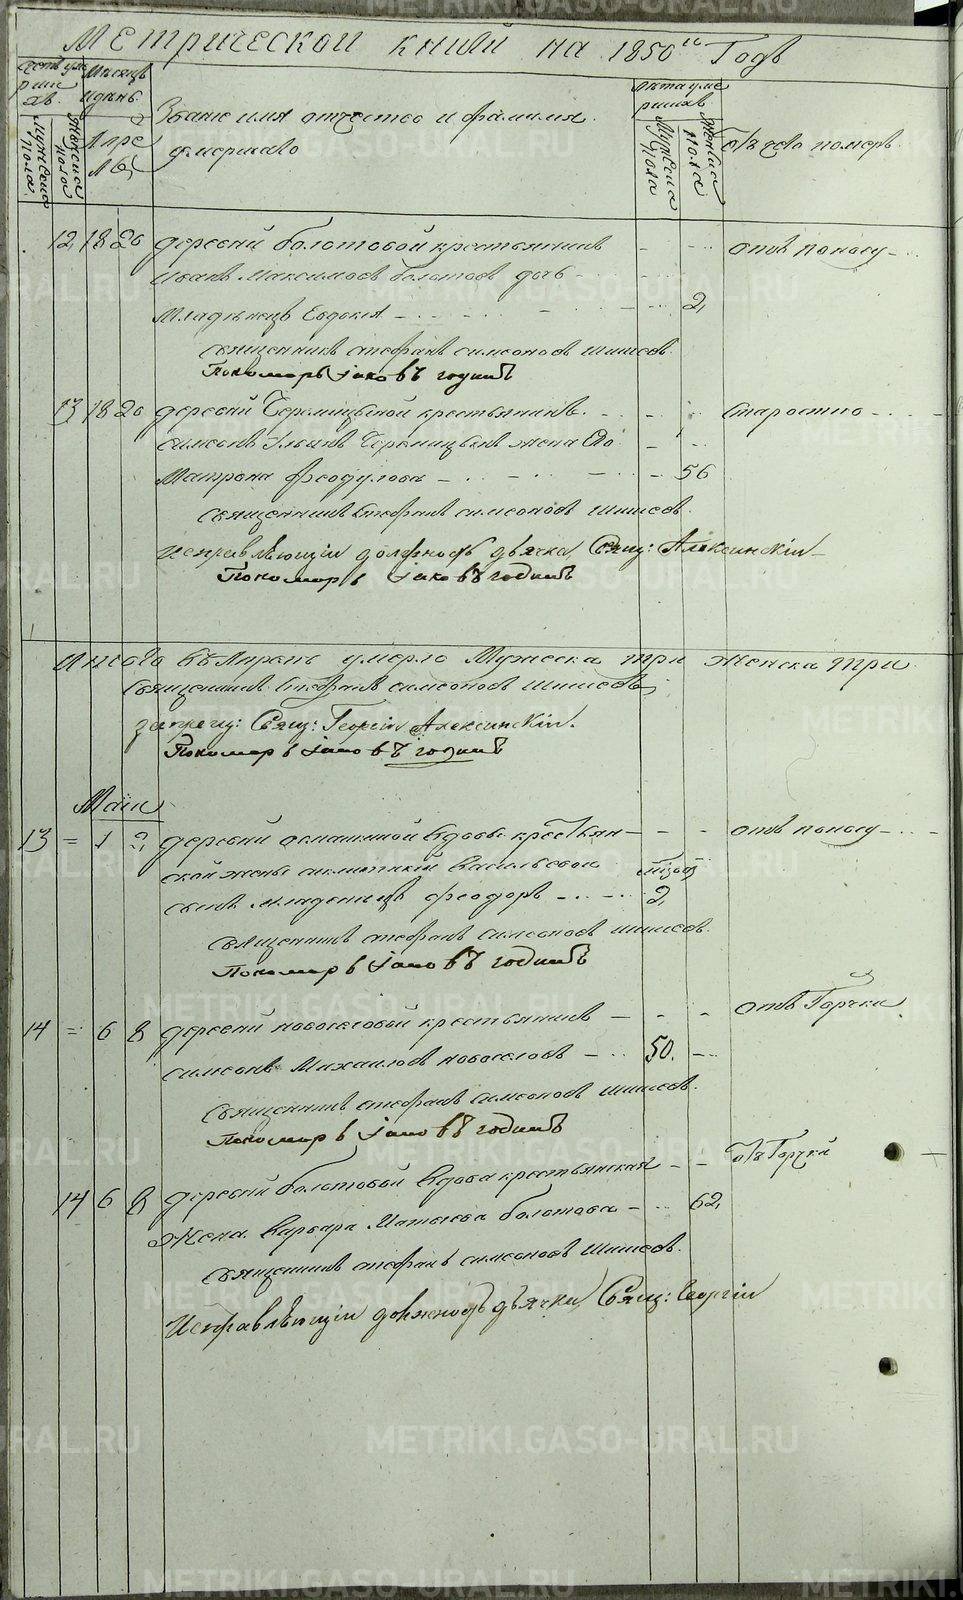 Метрической книги на 1850й Годъ
Счетъ умершихъ.
Мѣсяцъ и день.
Званіе имя отчество и фамилія умершаго
Лѣта умершихъ
Отъ чего померъ
Мужеска пола
Женска пола
Апрель
Мужеска пола
Женска пола
12, 18 20 деревни болотовой крестьянина - - отъ поносу
Иванъ Максимовъ болотовъ дочь
Младенецъ Евдокія 2,
священникъ стефанъ симеоновъ шишевъ
Пономарь Іаковъ годинъ
13, 18 20 деревни Черемицыной крестьянинъ. старостію
симеонъ Ильинъ Черемицынъ жена Его
Матрона Феодулова 56
священникъ Стефанъ симеоновъ шишевъ.
Исправляющій должность дьячка, Свящ: Алексинскій
Пономарь Іаковъ годинъ
Итого въ Апрель умерло Мужеска три Женска три
Священникъ Стефанъ симеоновъ шишевъ
Свящ: Георгій Алексинскій.
Пономарь Іаковъ годинъ
Маій
13 = 1 3, деревни вдовы крестьян- отъ поносу
ской жены Васильевой
сынъ младенецъ феодоръ 2,
священникъ стефанъ симеоновъ шишевъ.
Пономарь Іаковъ годинъ
14 = 6 8 деревни новоселовой крестьянинъ отъ Горчки
симеонъ Михаиловъ новоселовъ 50.
священникъ стефанъ симеоновъ шишевъ.
Пономарь Іаковъ годинъ
14 6 8 деревни болотовой вдова крестьянская отъ Горчки
жена Варвара болотова 62,
священникъ стефанъ симеоновъ шишевъ.
Исправляющій должность дьячка, Свящ: Георгій